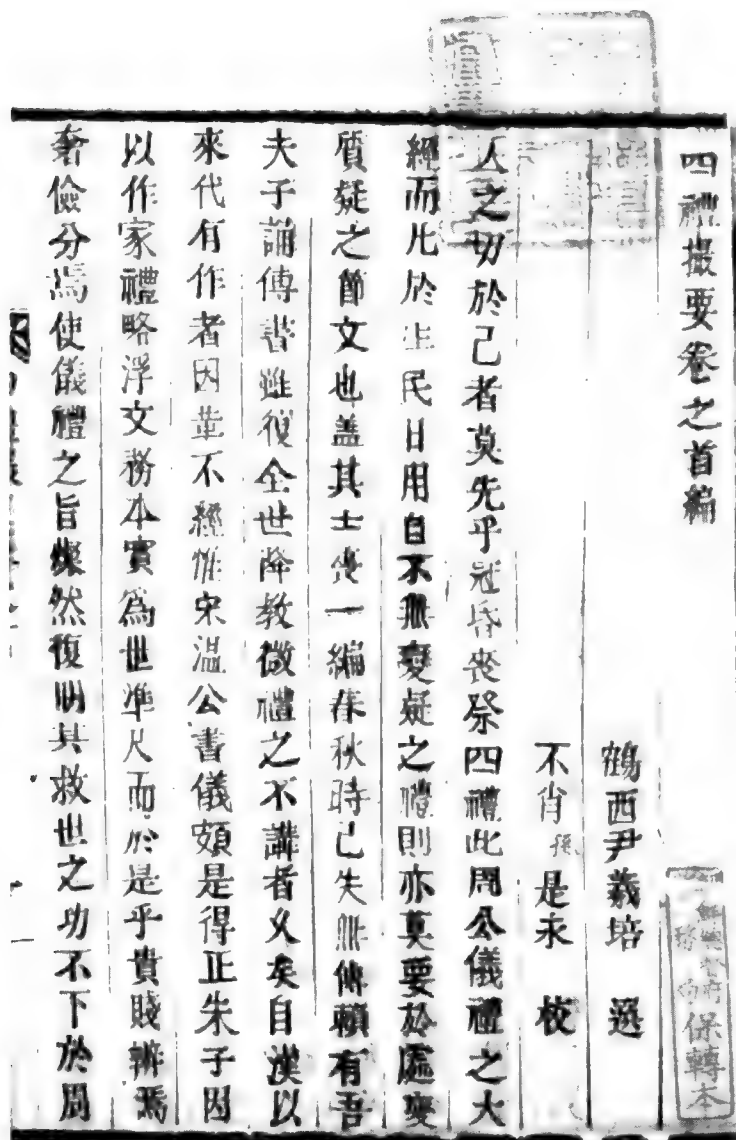 四禮撮要卷之首編
鶴西尹羲培 選
不肖孫是永 校
人之切於己者莫先乎冠昏喪祭四禮此周公儀禮之大
經而凡於生民日用自不無變疑之禮則亦莫要於處變
質疑之節文也盖其士喪一編春秋時已失無傳賴有吾
夫子誦傳書雖復全世降教微禮之不講者久矣自漢以
來代有作者因革不經惟宋溫公書儀頗是得正朱子因
以作家禮略浮文務本實爲世準尺而於是乎貴賤辨焉
奢儉分焉使儀禮之旨燦然復明其救世之功不下於周
保轉本